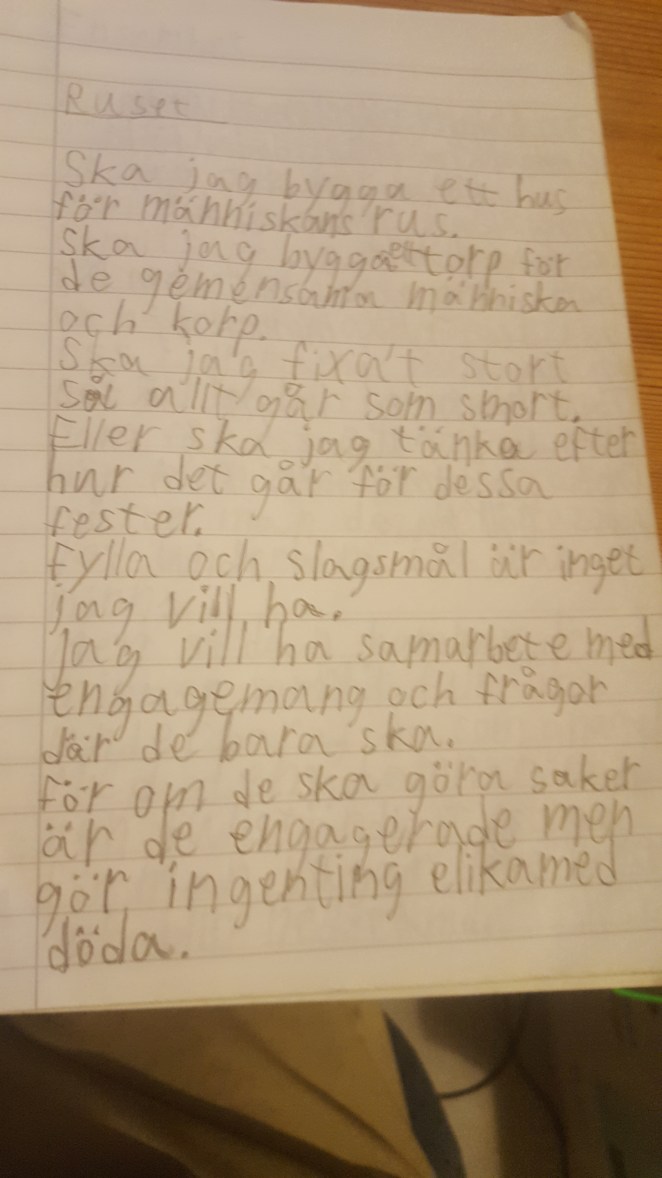 Ruset
Ska jag bygga ett hus
för människans rus.
Ska jag bygga ett torp för
de gemensamma människa
och korp.
Ska jag fixa't stort
Så allt går som smort.
Eller ska jag tänka efter
hur det går för dessa
fester.
Fylla och slagsmål är inget
jag vill ha.
Jag vill ha samarbete med
engagemang och frågor
där de bara ska.
för om de ska göra saker
är de engagerade men
gör ingenting elikamed
döda.